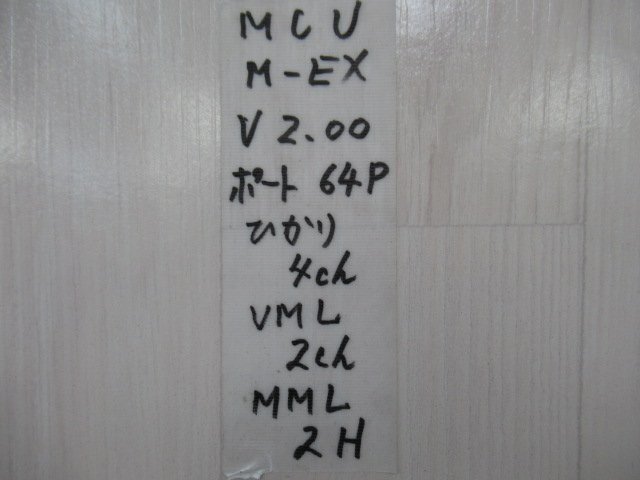 MCU
M-EX
V2.00
ポート 64P
ひかり
4ch
VML
2ch
MML
2H